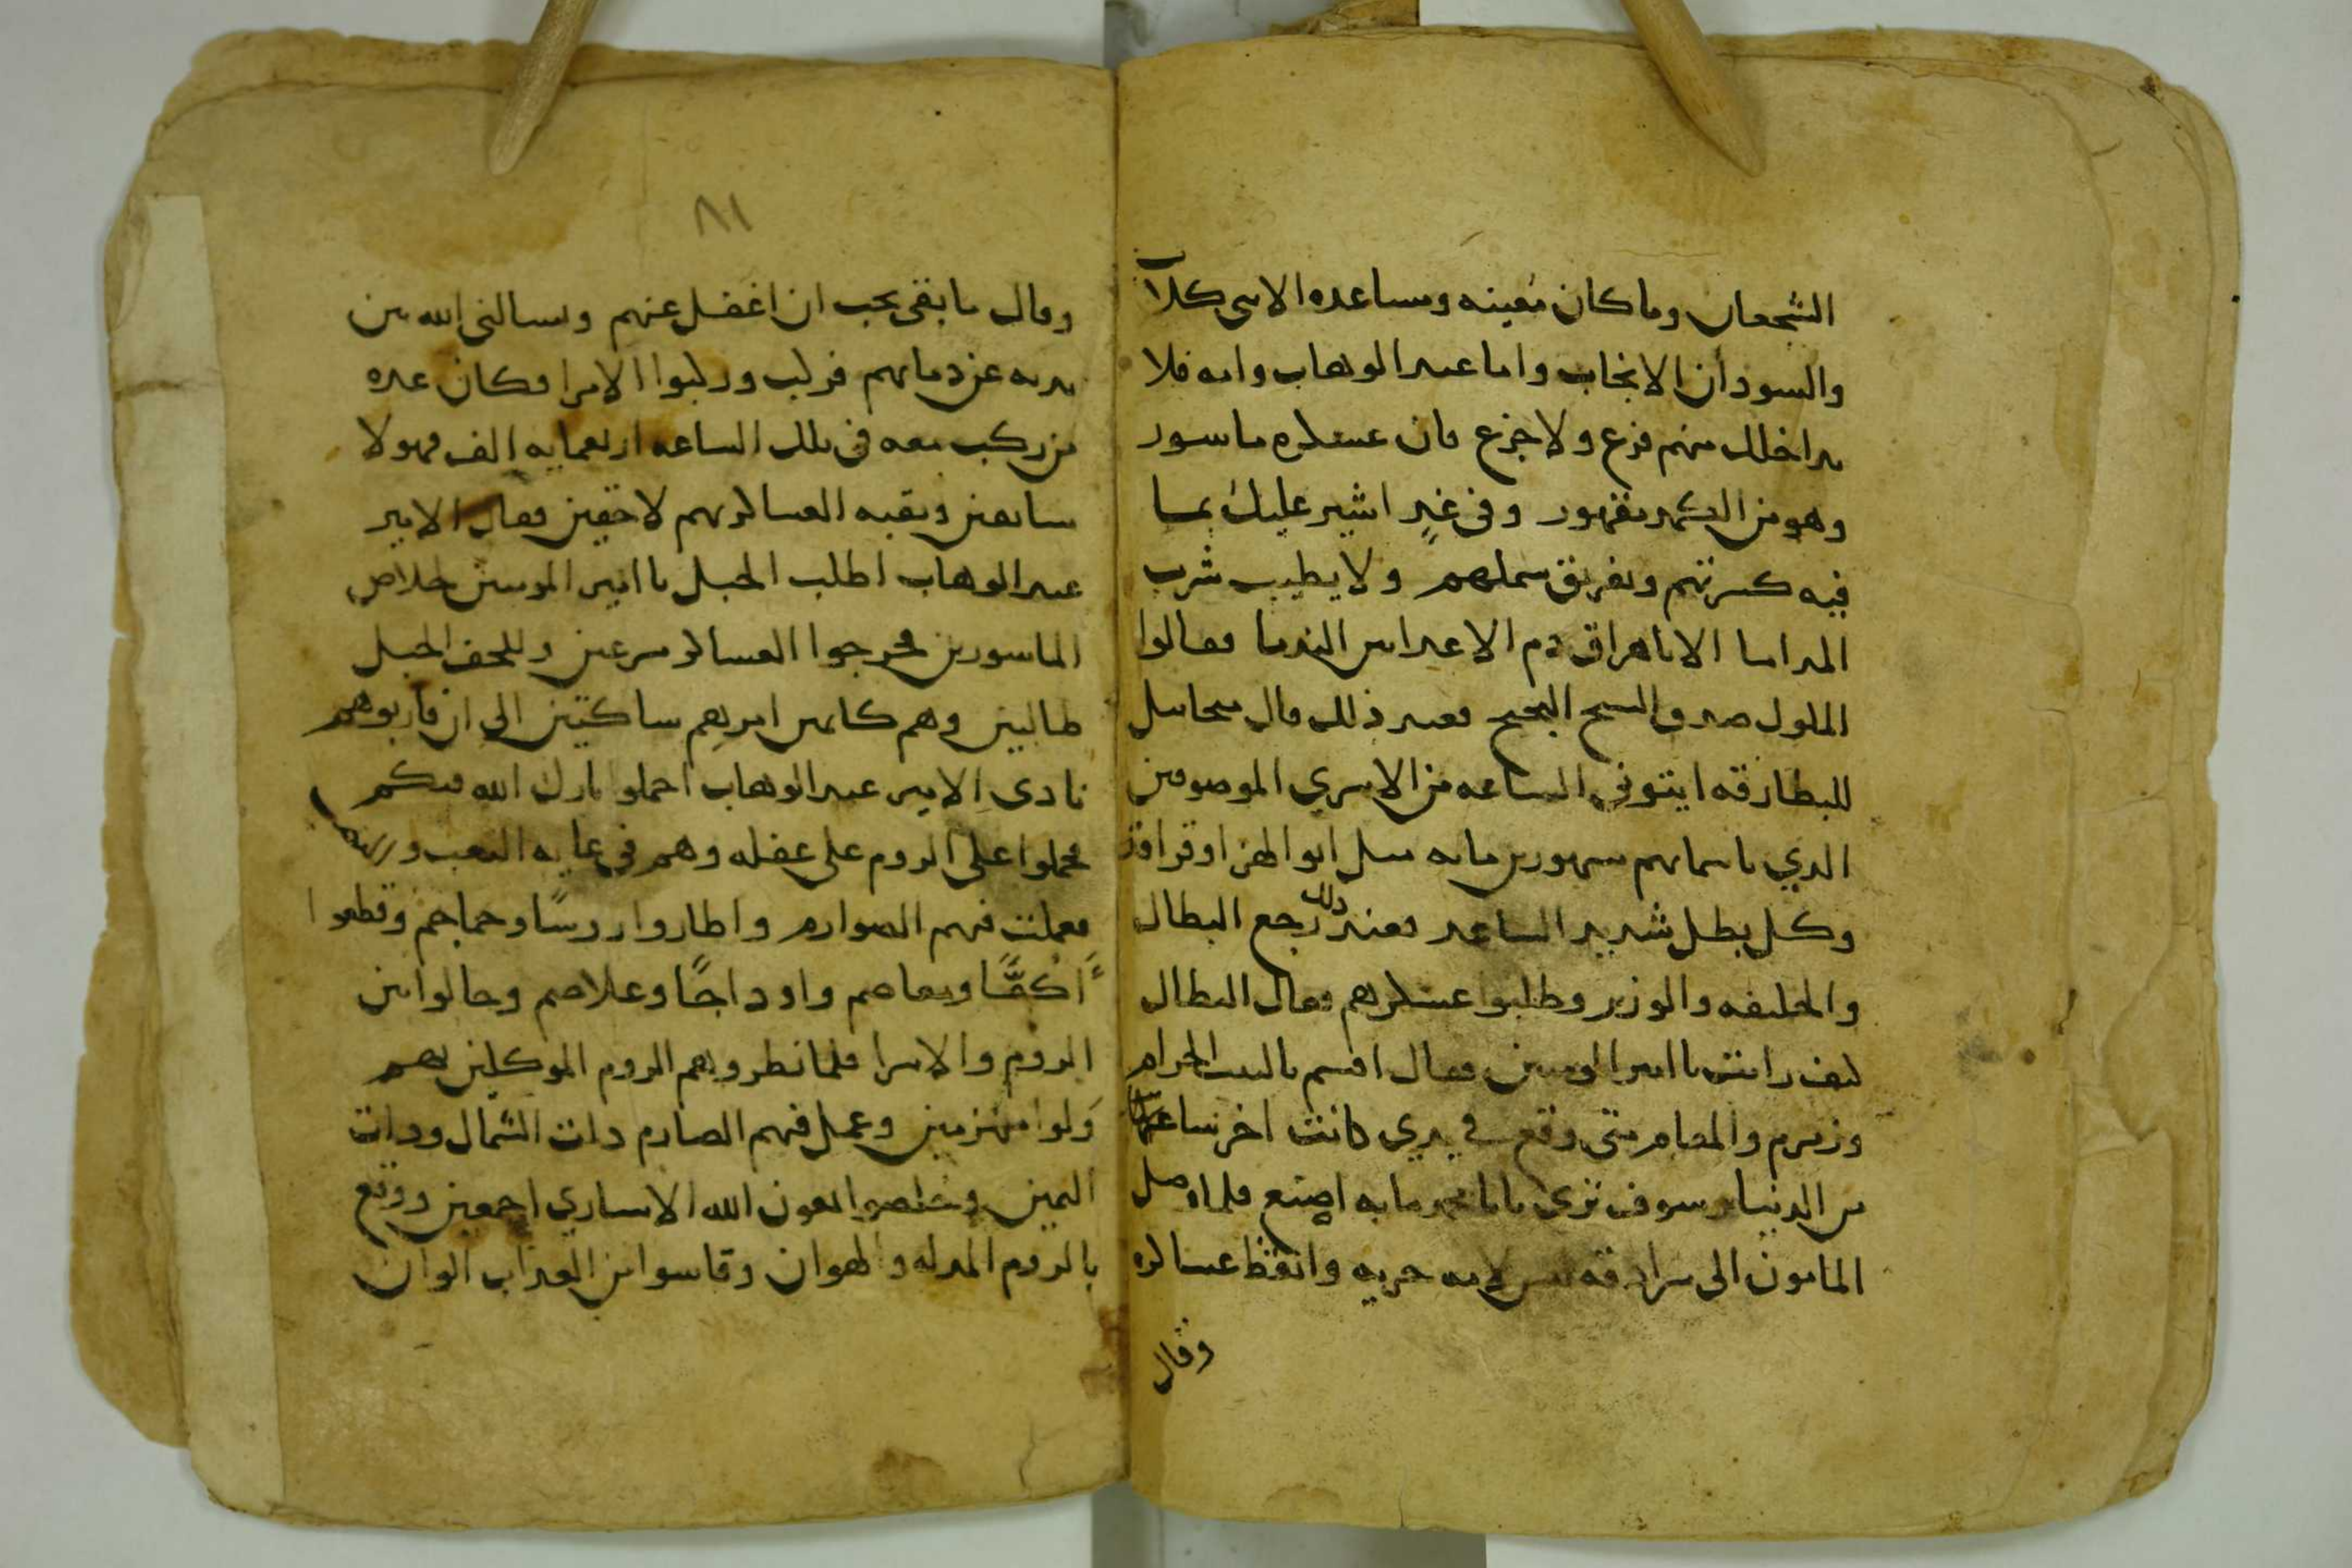 الشجعان وما كان معينه ومساعده الا بني كلاب
والسودان الانجاب واما عبد الوهاب وامه فلا
يداخلك منهم فزع ولا جزع فان عسكره ماسور
وهو من الكمد مقهور وفي غدٍ اشير عليك بما
فيه كسرتهم وتفريق شملهم ولا يطيب شرب
المداما الا باهراق دم الاعدا من الندما فقالوا
الملوك صدق المسيح البحيح فعند ذلك قال ميخاييل
للبطارقه ايتوني الساعه من الاسري الموصوفين
الذي باسمايهم مشهورين مايه مثل ابو الهزاهز
وكل بطل شديد الساعد فعند ذلك رجع البطال
والخليفه والوزير وطلبوا عسكرهم فقال البطال
كيف رايت يا امير المومنين فقال اقسم بالبيت الحرام
وزمزم والمقام متى وقع في يدي كانت اخر ساعته
من الدنيا وسوف ترى يابا محمد ما به اصنع فلما وصل
المامون الى سرادقه لبس لامه حربه وايقظ عساكره
وقال
٨١
وقال ما بقى يجب ان اغفل عنهم ويسالني الله بين
يديه عن دمايهم فركب وركبوا الامرا فكان عده
من ركب معه في تلك الساعه اربعمايه الف فهولا
سابقين وبقيه العساكر بهم لاحقين فقال الامير
عبد الوهاب اطلب الجبل يا امير المومنين خلاص
الماسورين فخرجوا العساكر مسرعين وللحف الجبل
طالبين وهم كاتمين امرهم ساكتين الى ان قاربوهم
نادى الامير عبد الوهاب احملوا بارك الله فيكم
فحملوا على الروم على غفله وهم في غايه التعب
فعملت فيهم الصوارم واطاروا روسًا وجماجم وقطعوا
اكفًّا ومعاصم واوداجًا وغلاصم وحالوا بين
الروم والاسرا فلما نظروهم الروم الموكلين بهم
ولوا منهزمين وعمل فيهم الصارم ذات الشمال وذات
اليمين وخلصوا بعون الله الاساري اجمعين ووقع
بالروم المذله والهوان وقاسوا من العذاب الوان